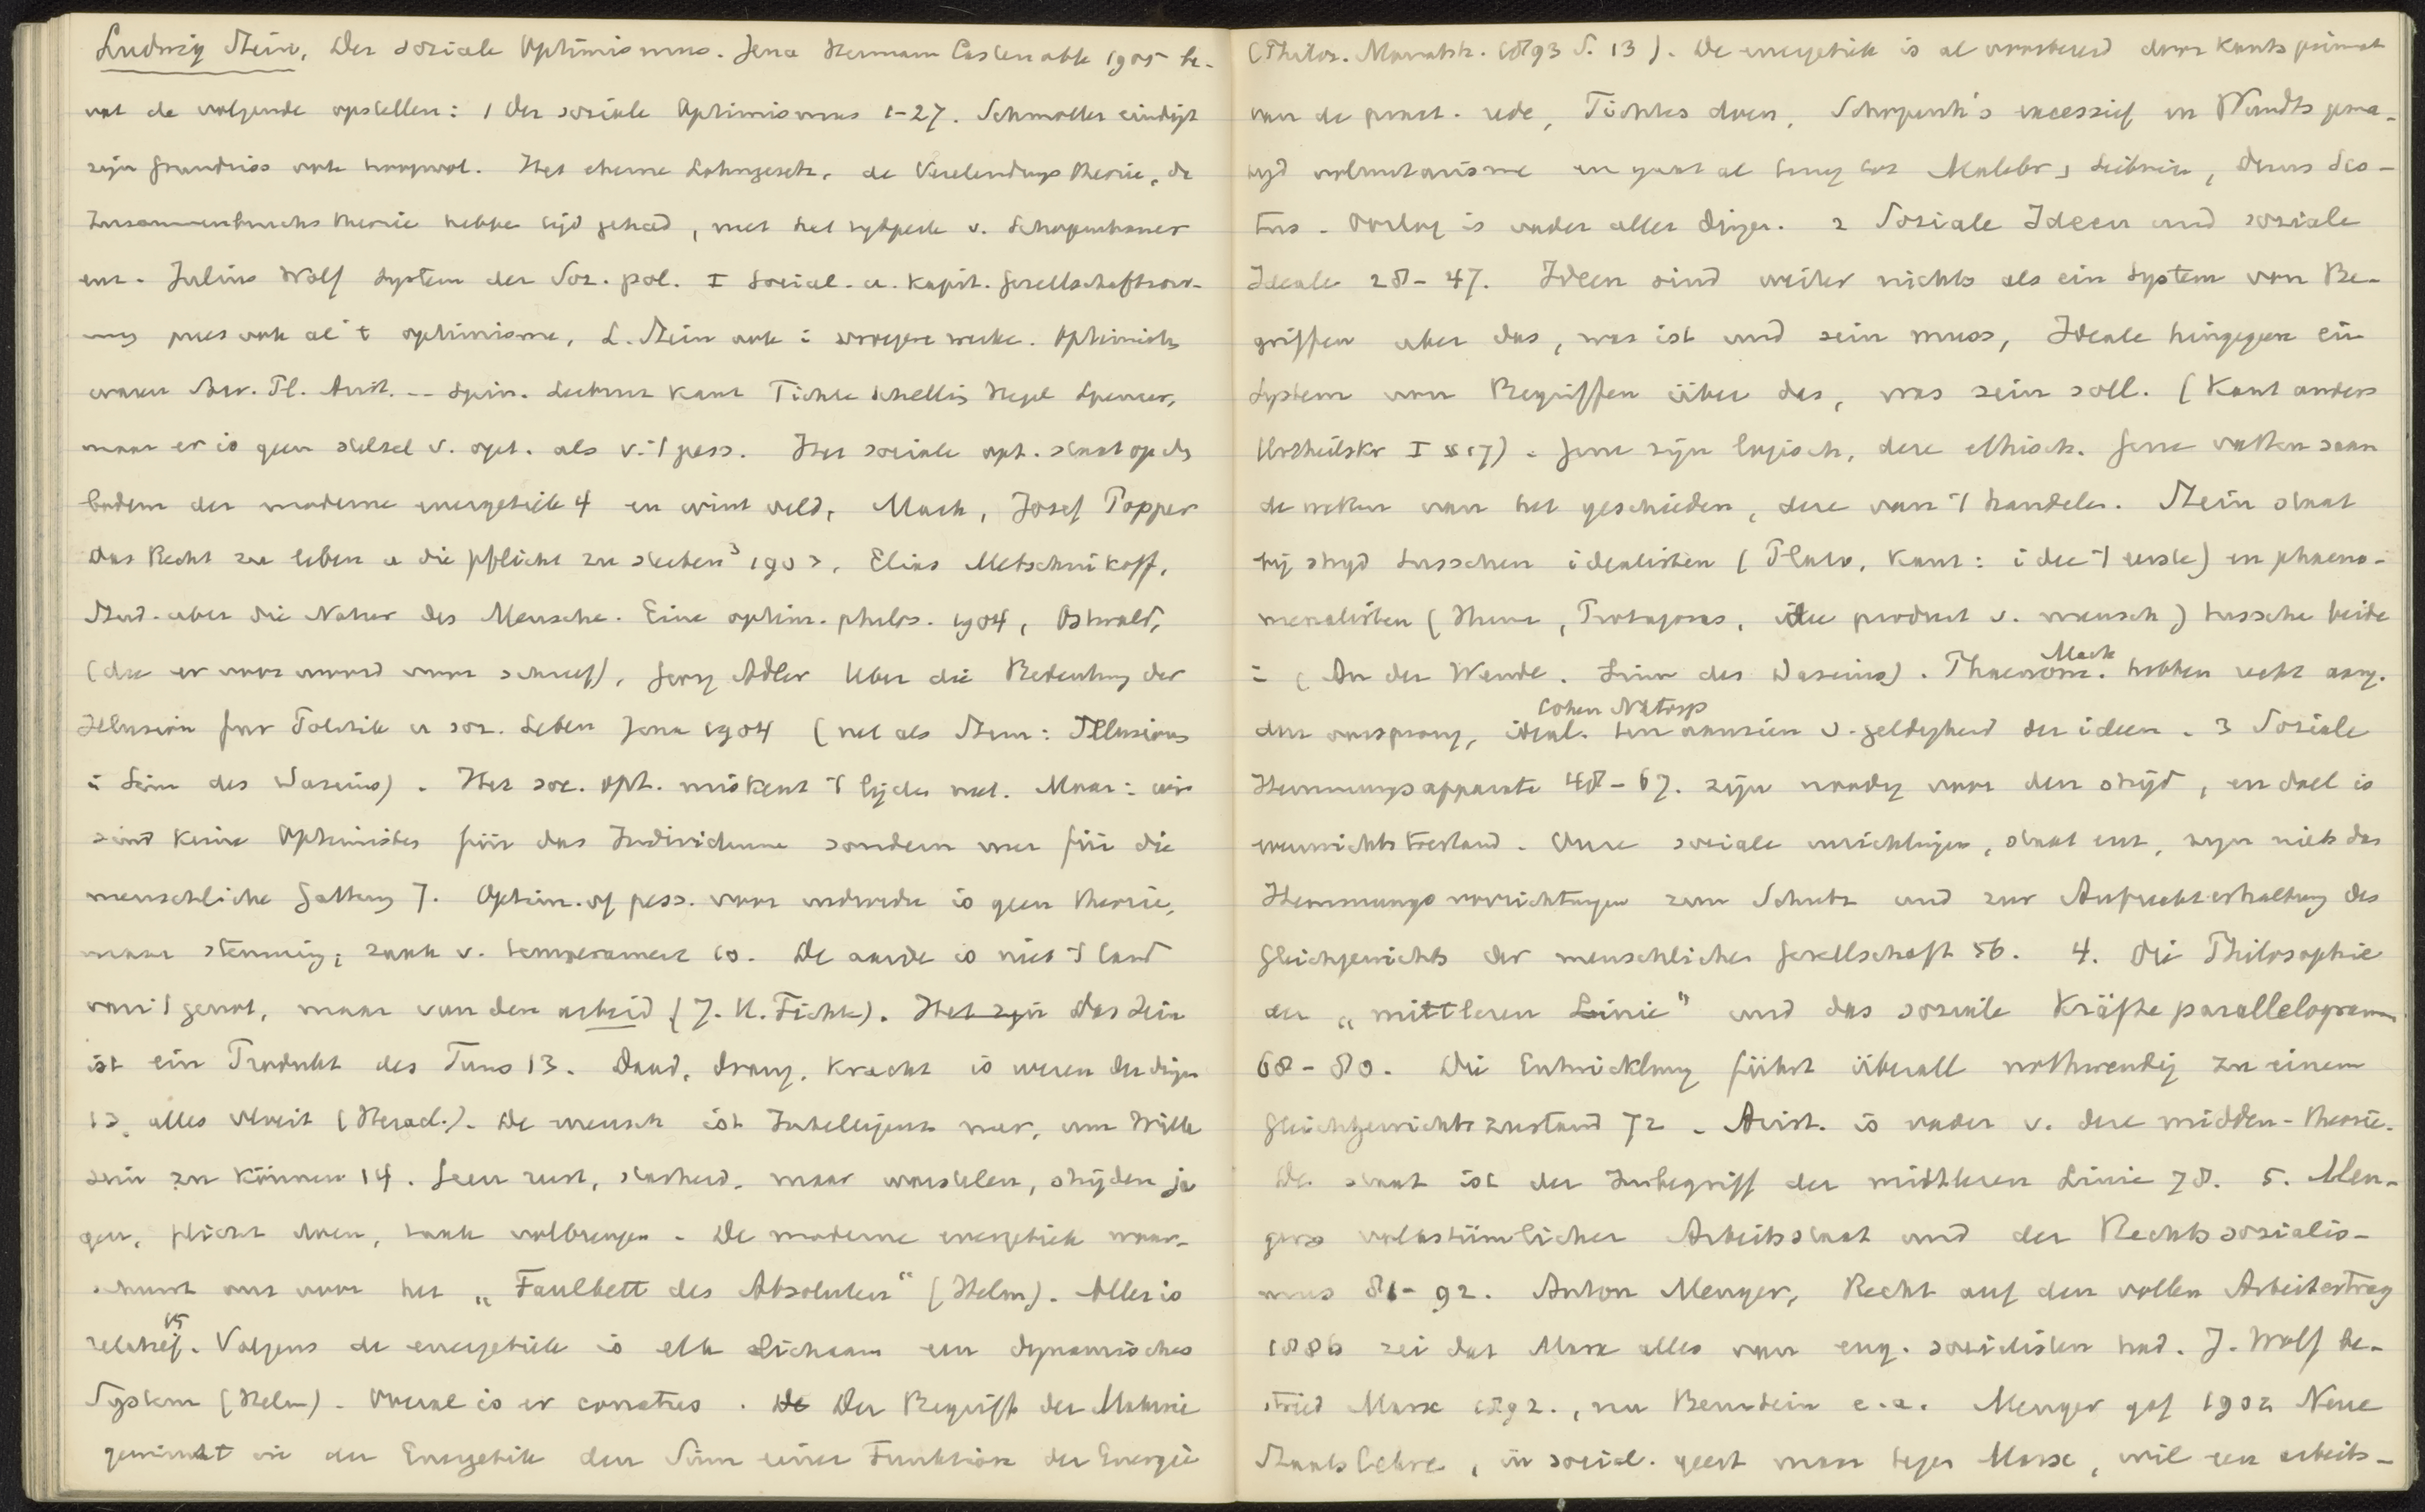 Ludwig Stein, Der soziale Optimismus. Jena Hermann Costenoble 1905 be-
vat de volgende opstellen: 1 Der soziale Optimismus 1-27. Schmoller eindigt
zijn Grundriss ook hoopvol. Het eherne Lohngesetz, de Verelendungstheorie, de
Zusammenbruchstheorie hebben tijd gehad, met het tydperk v. Schopenhauer
enz. Julius Wolf System der Soz. pol. I Social. u. kapit. Gesellschaftsord-
nung pries ook al 't optimisme, L. Stein ook i vroegere werke. Optimisten
waren Socr. Pl. Arist. -- Spin. Leibniz Kant Fichte Schelling Hegel Spencer,
maar er is geen stelsel v. opt. als v. 't pess. Het sociale opt. staat op den
bodem der moderne energetiek 4 en wint veld, Mach, Josef Popper
Das Recht zu leben u die Pflicht zu sterben³ 1903, Elias Metschnikoff,
Stud. uber die Natur des Mensche. Eine optim. philos. 1904, Ostwald,
(die er voor woord voor schreef), Georg Adler Uber die Bedeutung der
Illusion fur Politik u soz. Leben Jena 1904 (net als Stein: Illusions
i Sinn des Daseins). Het soc. opt. miskent 't lijden niet. Maar: wir
sind keine Optimisten für das Individuum sondern nur für die
menschliche Gattung 7. Optim. of pess. voor individu is geen theorie,
maar stemming, zaak v. temperament 10. De aarde is niet 't land
van 't genot, maar van den arbeid (J. G. Fichte). Het zijn Das Sein
ist ein Produkt des Tuns 13. Daad, drang, kracht is wezen der dingen
13, alles vloeit (Heracl.). De mensch ist Intelligenz nur, um Wille
sein zu können 14. Geen rust, starheid, maar worstelen, strijden ja
gen, plicht doen, taak volbrengen. De moderne energetiek waar-
schuwt ons voor het „Faulbett des Absoluten“ (Helm). Alles is
relatief. 15 Volgens de energetiek is elk lichaam een dynamisches
System (Helm). Overal is er conatus. De Der Begriff der Materie
gewinnt in der Energetik den Sinn einer Funktion der Energie
(Philos. Monatsh. 1893 S. 13). De energetiek is al voorbereid door Kants primat
van de pract. rede, Fichtes doen, Schopenh's excessief en Wundts gema-
tigd voluntarisme en gaat al terug tot Malebr, Leibniz, Duns Sco-
tus. Oorlog is vader aller dingen. 2 Soziale Ideen und soziale
Ideale 28-47. Ideen sind weiter nichts als ein System von Be-
griffen uber das, was ist und sein muss, Ideale hingegen ein
System von Begriffen über das, was sein soll. (Kant anders
Urtheilskr I § 17). Gene zijn logisch, deze ethisch. Gene vatten saam
de wetten van het geschieden, deze van 't handelen. Stein staat
bij strijd tusschen idealisten (Plato, Kant: idee 't eerste) en phaeno-
menalisten (Hume, Protagoras, idee product v. mensch) tussche beide
in (An der Wende. Sinn des Daseins). Phaenom. Mach hebben recht aang.
den oorsprong, ideal. Cohen Natorp ten aanzien v. geldigheid der ideen. 3 Soziale
Hemmungsapparate 48-67. zijn noodig voor den strijd, en doel is
evenwichtstoestand. Onze sociale inrichtingen, staat enz, zijn niets dan
Hemmungsvorrichtungen zum Schutz und zur Aufrechterhaltung des
Gleichgewichts der menschlichen Gesellschaft 56. 4. Die Philosophie
der „mittleren Linie“ und das soziale Kräfteparallelogramm
68-80. Die Entwicklung führt überall nothwendig zu einem
Gleichgewichtszustand 72. Arist. is vader v. deze midden-theorie.
De staat ist der Inbegriff der mittleren Linie 78. 5. Men-
gers volkstümlicher Arbeitsstaat und der Rechtssozialis-
mus 81-92. Anton Menger, Recht auf den vollen Arbeitertrag
1886 zei dat Marx alles van eng. socialisten had. J. Wolf be-
streed Marx 1892., nu Bernstein e.a. Menger gaf 1902 Neue
Staatslehre, in social. geest maar tegen Marx, wil een arbeits-